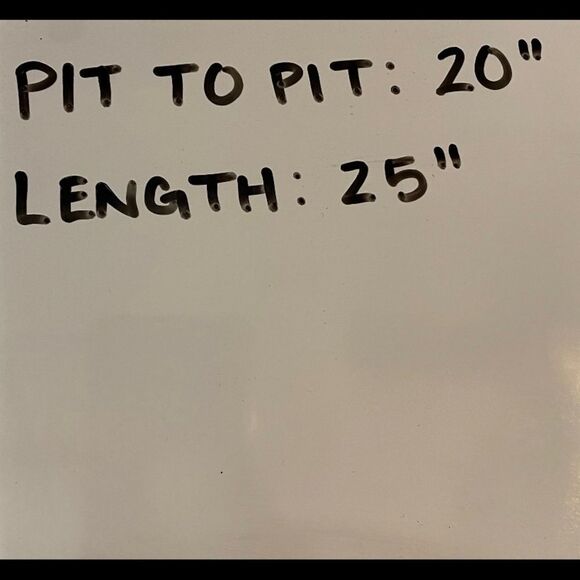 PIT TO PIT: 20"
LENGTH: 25"